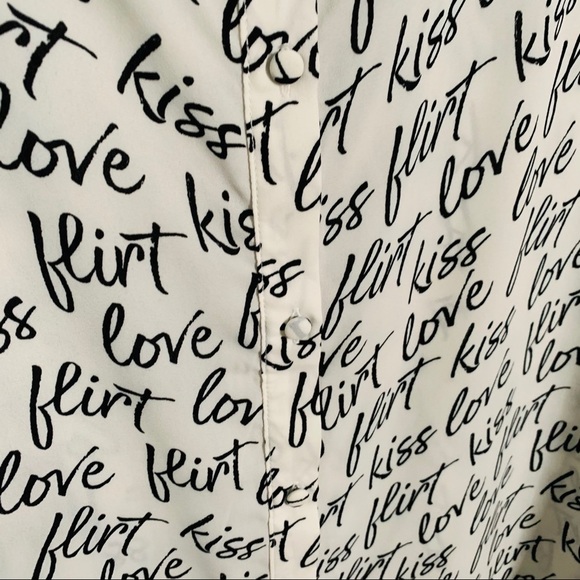 love kiss
kiss flirt kiss
love kiss flirt love
flirt kiss flirt kiss love
love flirt love kiss flirt
flirt love flirt kiss love
love flirt love flirt kiss flirt
flirt kiss kiss flirt love kiss
love